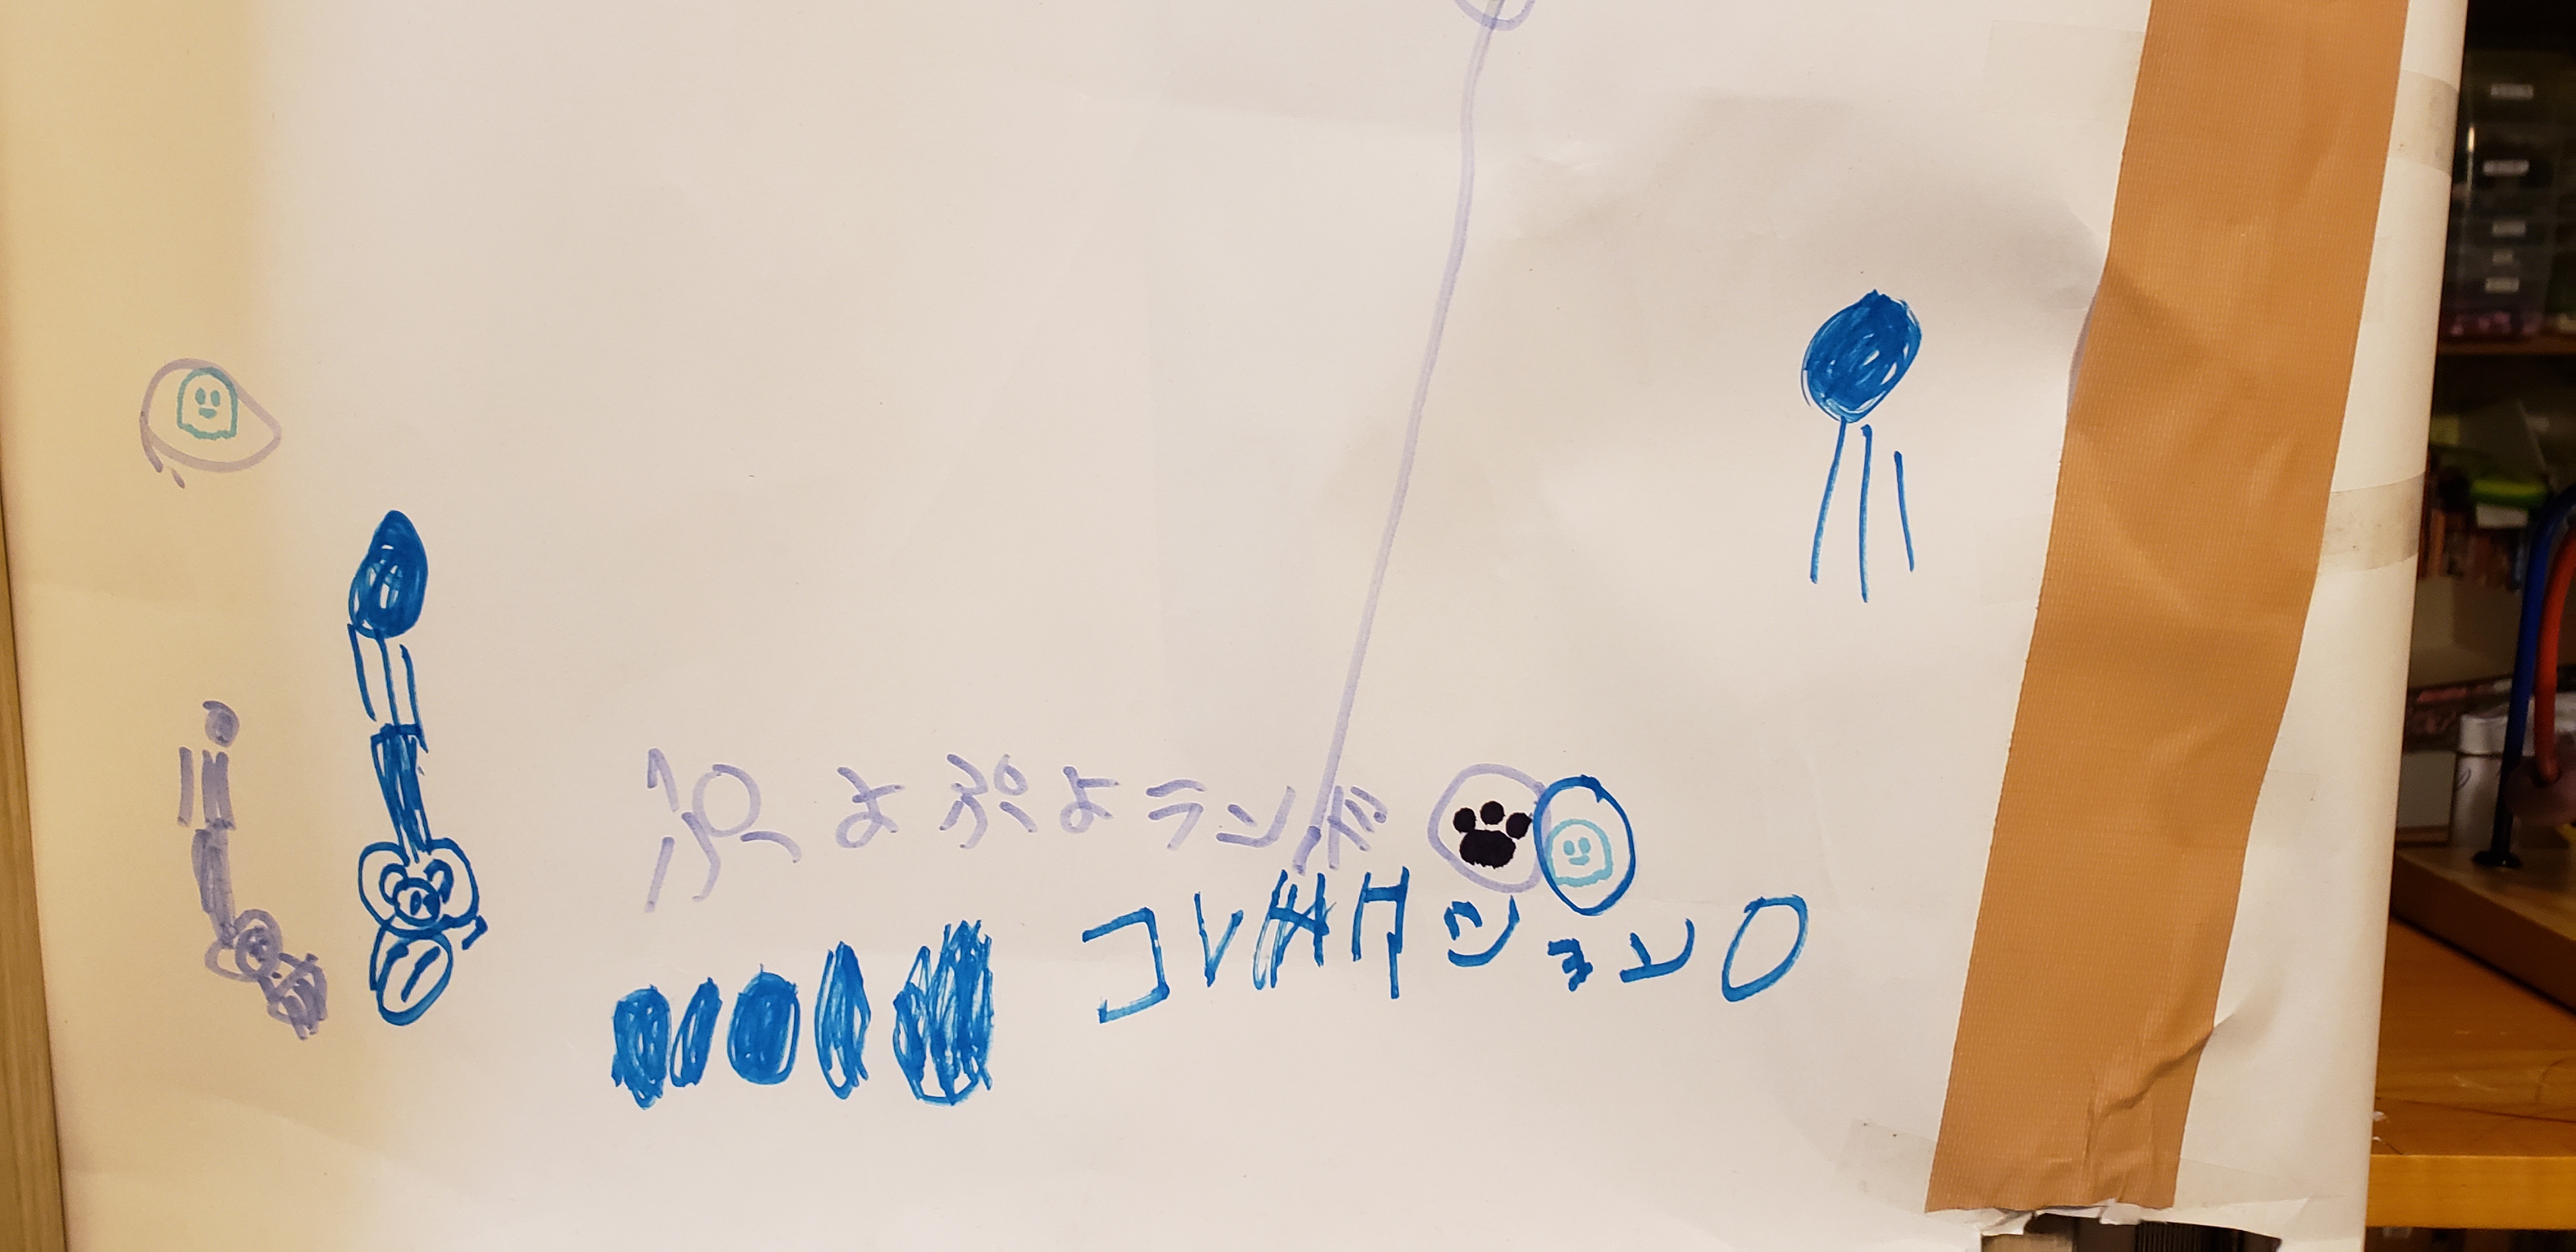 ぷよぷよラン
コレクション